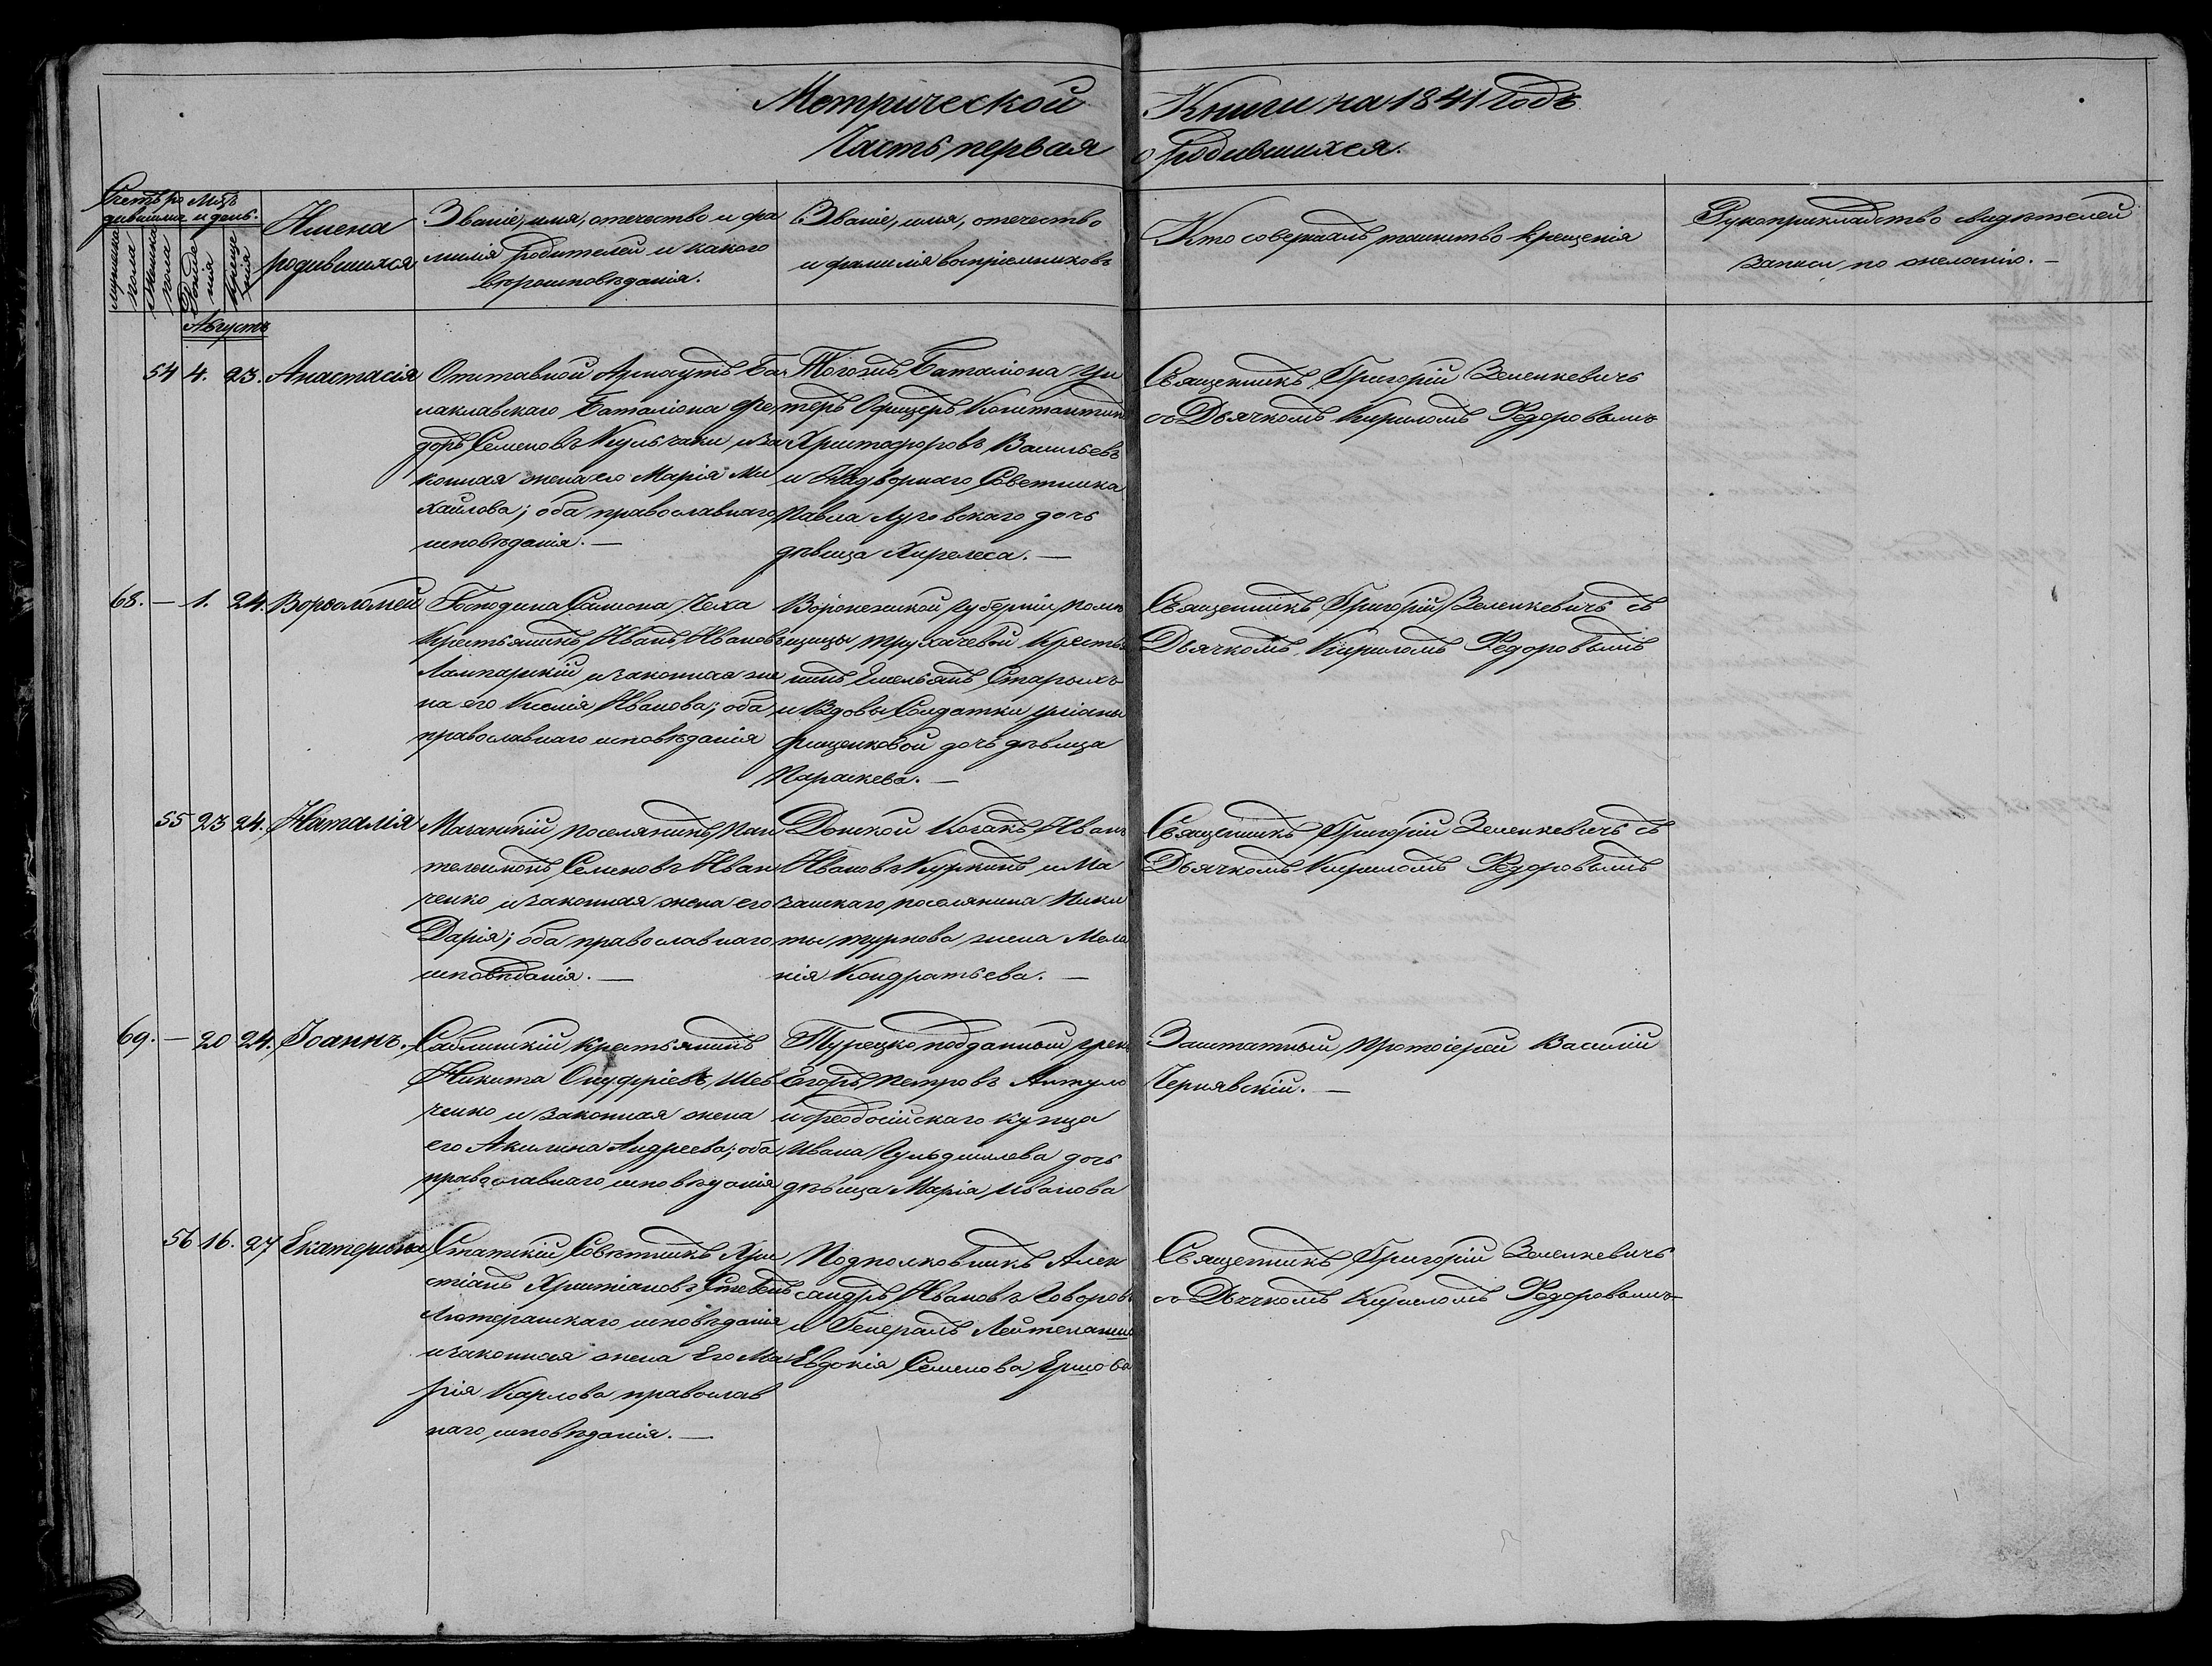 Метрической Книги на 1841 Годъ
Часть первая о Родившихся.
Счетъ ро
дившихся
Мѣс
и день.
мужеска
пола
женска
пола
Рожде
нія
Креще
нія
Имена
родившихся
Званіе, имя, отечество и фа
милія Родителей и какого
вѣроисповѣданія.
Званіе, имя, отечество
и фамилія воспріемниковъ
Кто совершалъ таинство крещенія
Рукоприкладство свидѣтелей
записи по желанію. —
Августъ
54 4. 23. Анастасія
Отставной Арнаутъ Ба
лаклавскаго Баталіона Фе
доръ Семеновъ и за
конная жена его Марія Ми
хайлова; оба православнаго
исповѣданія. —
Тогожъ Баталіона Ун
теръ Офицеръ Константинъ
Христофоровъ Васильевъ
и Надворнаго Советника
Павла Луговскаго дочь
дѣвица —
Священникъ Григорій Зеленкевичъ
съ Дьячкомъ Кириломъ Федоровымъ
68. — 1. 24. Ворѳоломей
Господина Самиона Чеха
Крестьянинъ Иванъ Ивановъ
и законная же
на его Ксенія Иванова; оба
православнаго исповѣданія
Воронежской губерніи пом
щицы крестья
нинъ Емельянъ Старыхъ
и Вдовы Солдатки
дочь дѣвица
Параскева. —
Священникъ Григорій Зеленкевичъ съ
Дьячкомъ Кириломъ Федоровымъ
55 23 24. Наталія
Мазанскій поселянинъ Пан
телеимонъ Семеновъ Иван
ченко и законная жена его
Дарія; оба православнаго
исповѣданія. —
Донской Козакъ Иванъ
Ивановъ Куркинъ, и Ма
занскаго поселянина Ники
ты жена Мела
нія Кондратьева. —
Священникъ Григорій Зеленкевичъ съ
Дьячкомъ Кириломъ Федоровымъ
69. — 20 24. Іоаннъ.
Саблинскій крестьянинъ
Никита Онуфріевъ Шев
ченко и законная жена
его Акилина Андреева; оба
православнаго исповѣданія
Турецко подданный грекъ
Егоръ Петровъ
и феодосійскаго купца
Ивана дочь
дѣвица Марія Иванова
Заштатный Протоіерей Василій
Чернявскій. —
56 16. 27 Екатерина
Статскій Совѣтникъ Хри
стіанъ Христіановъ Стевенъ
Лютеранскаго исповѣданія
и законная жена Его Ма
рія Карлова православ
наго исповѣданія. —
Подполковникъ Алек
сандръ Ивановъ Говоровъ
и Генералъ Лейтенанша
Евдокія Семенова Ершова
Священникъ Григорій Зеленкевичъ
съ Дьячкомъ Кириломъ Федоровымъ